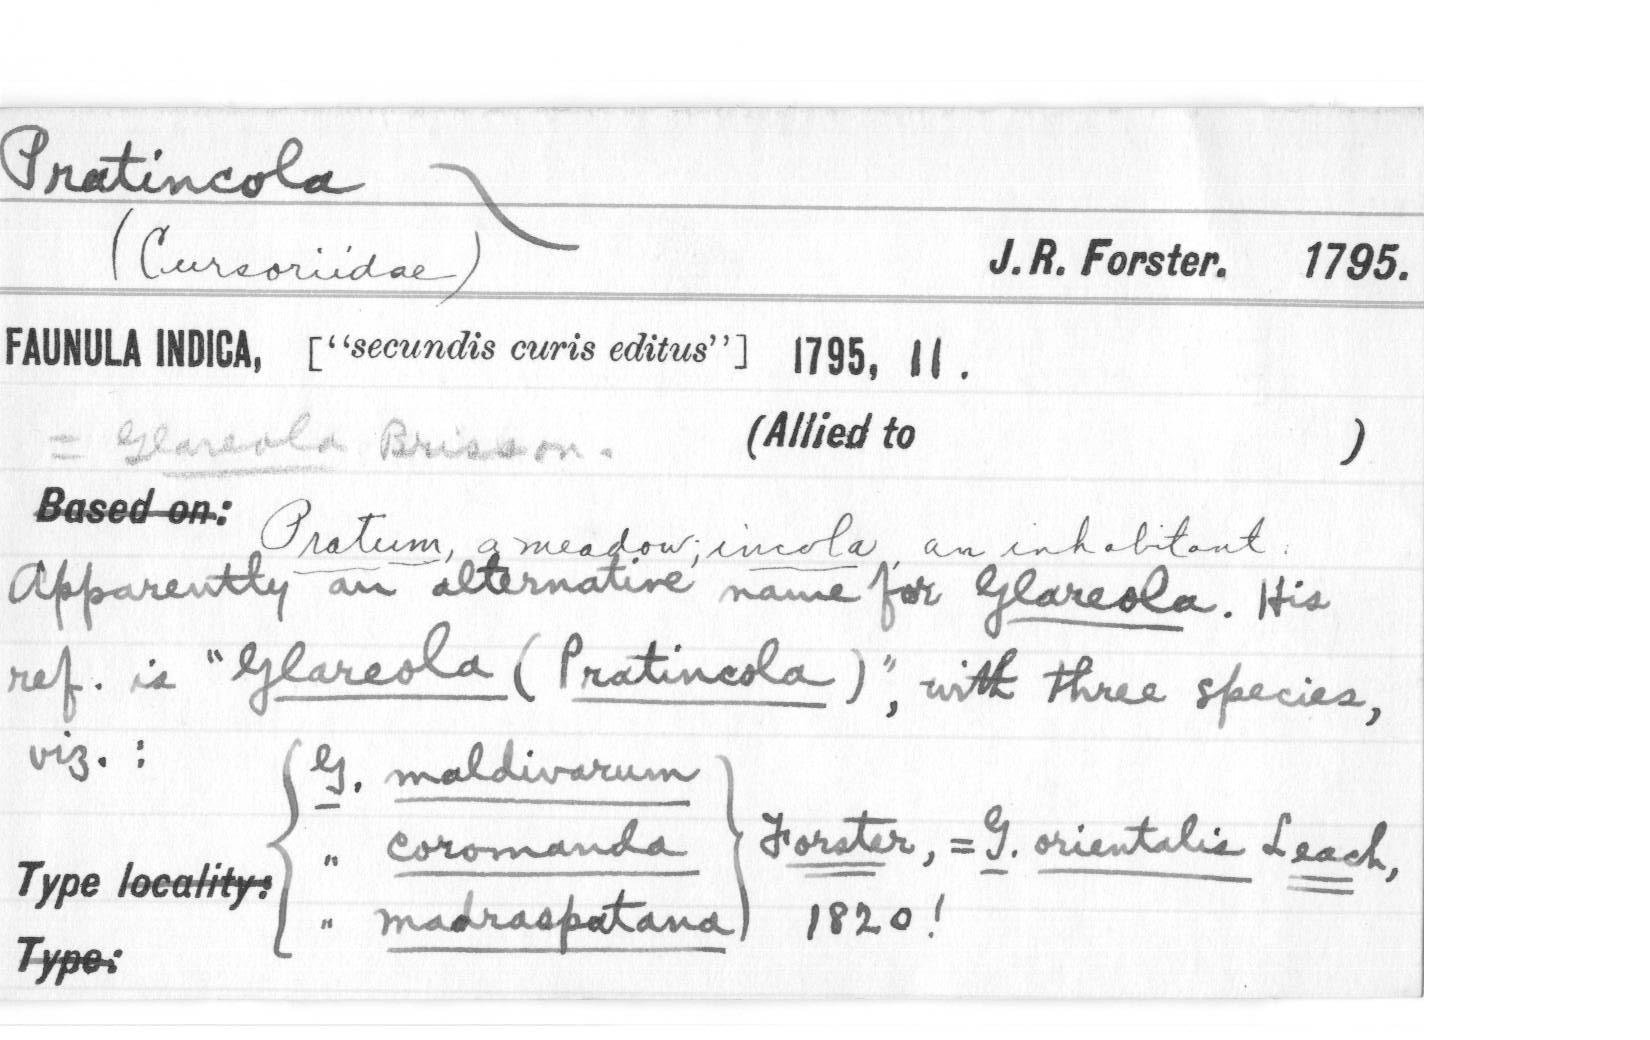 Pratincola
(Cursoriidae)
J. R. Forster. 1795.
FAUNULA INDICA, [“secundis curis editus”] 1795, 11.
= Glareola Brisson. (Allied to )
Based on: Pratum, a meadow; incola, an inhabitant.
Apparently an alternative name for Glareola. His
ref. is "Glareola (Pratincola)", with three species,
viz. :
G. maldivarum
" coromanda
" madraspatana
Forster, = G. orientalis Leach,
1820!
Type locality:
Type: